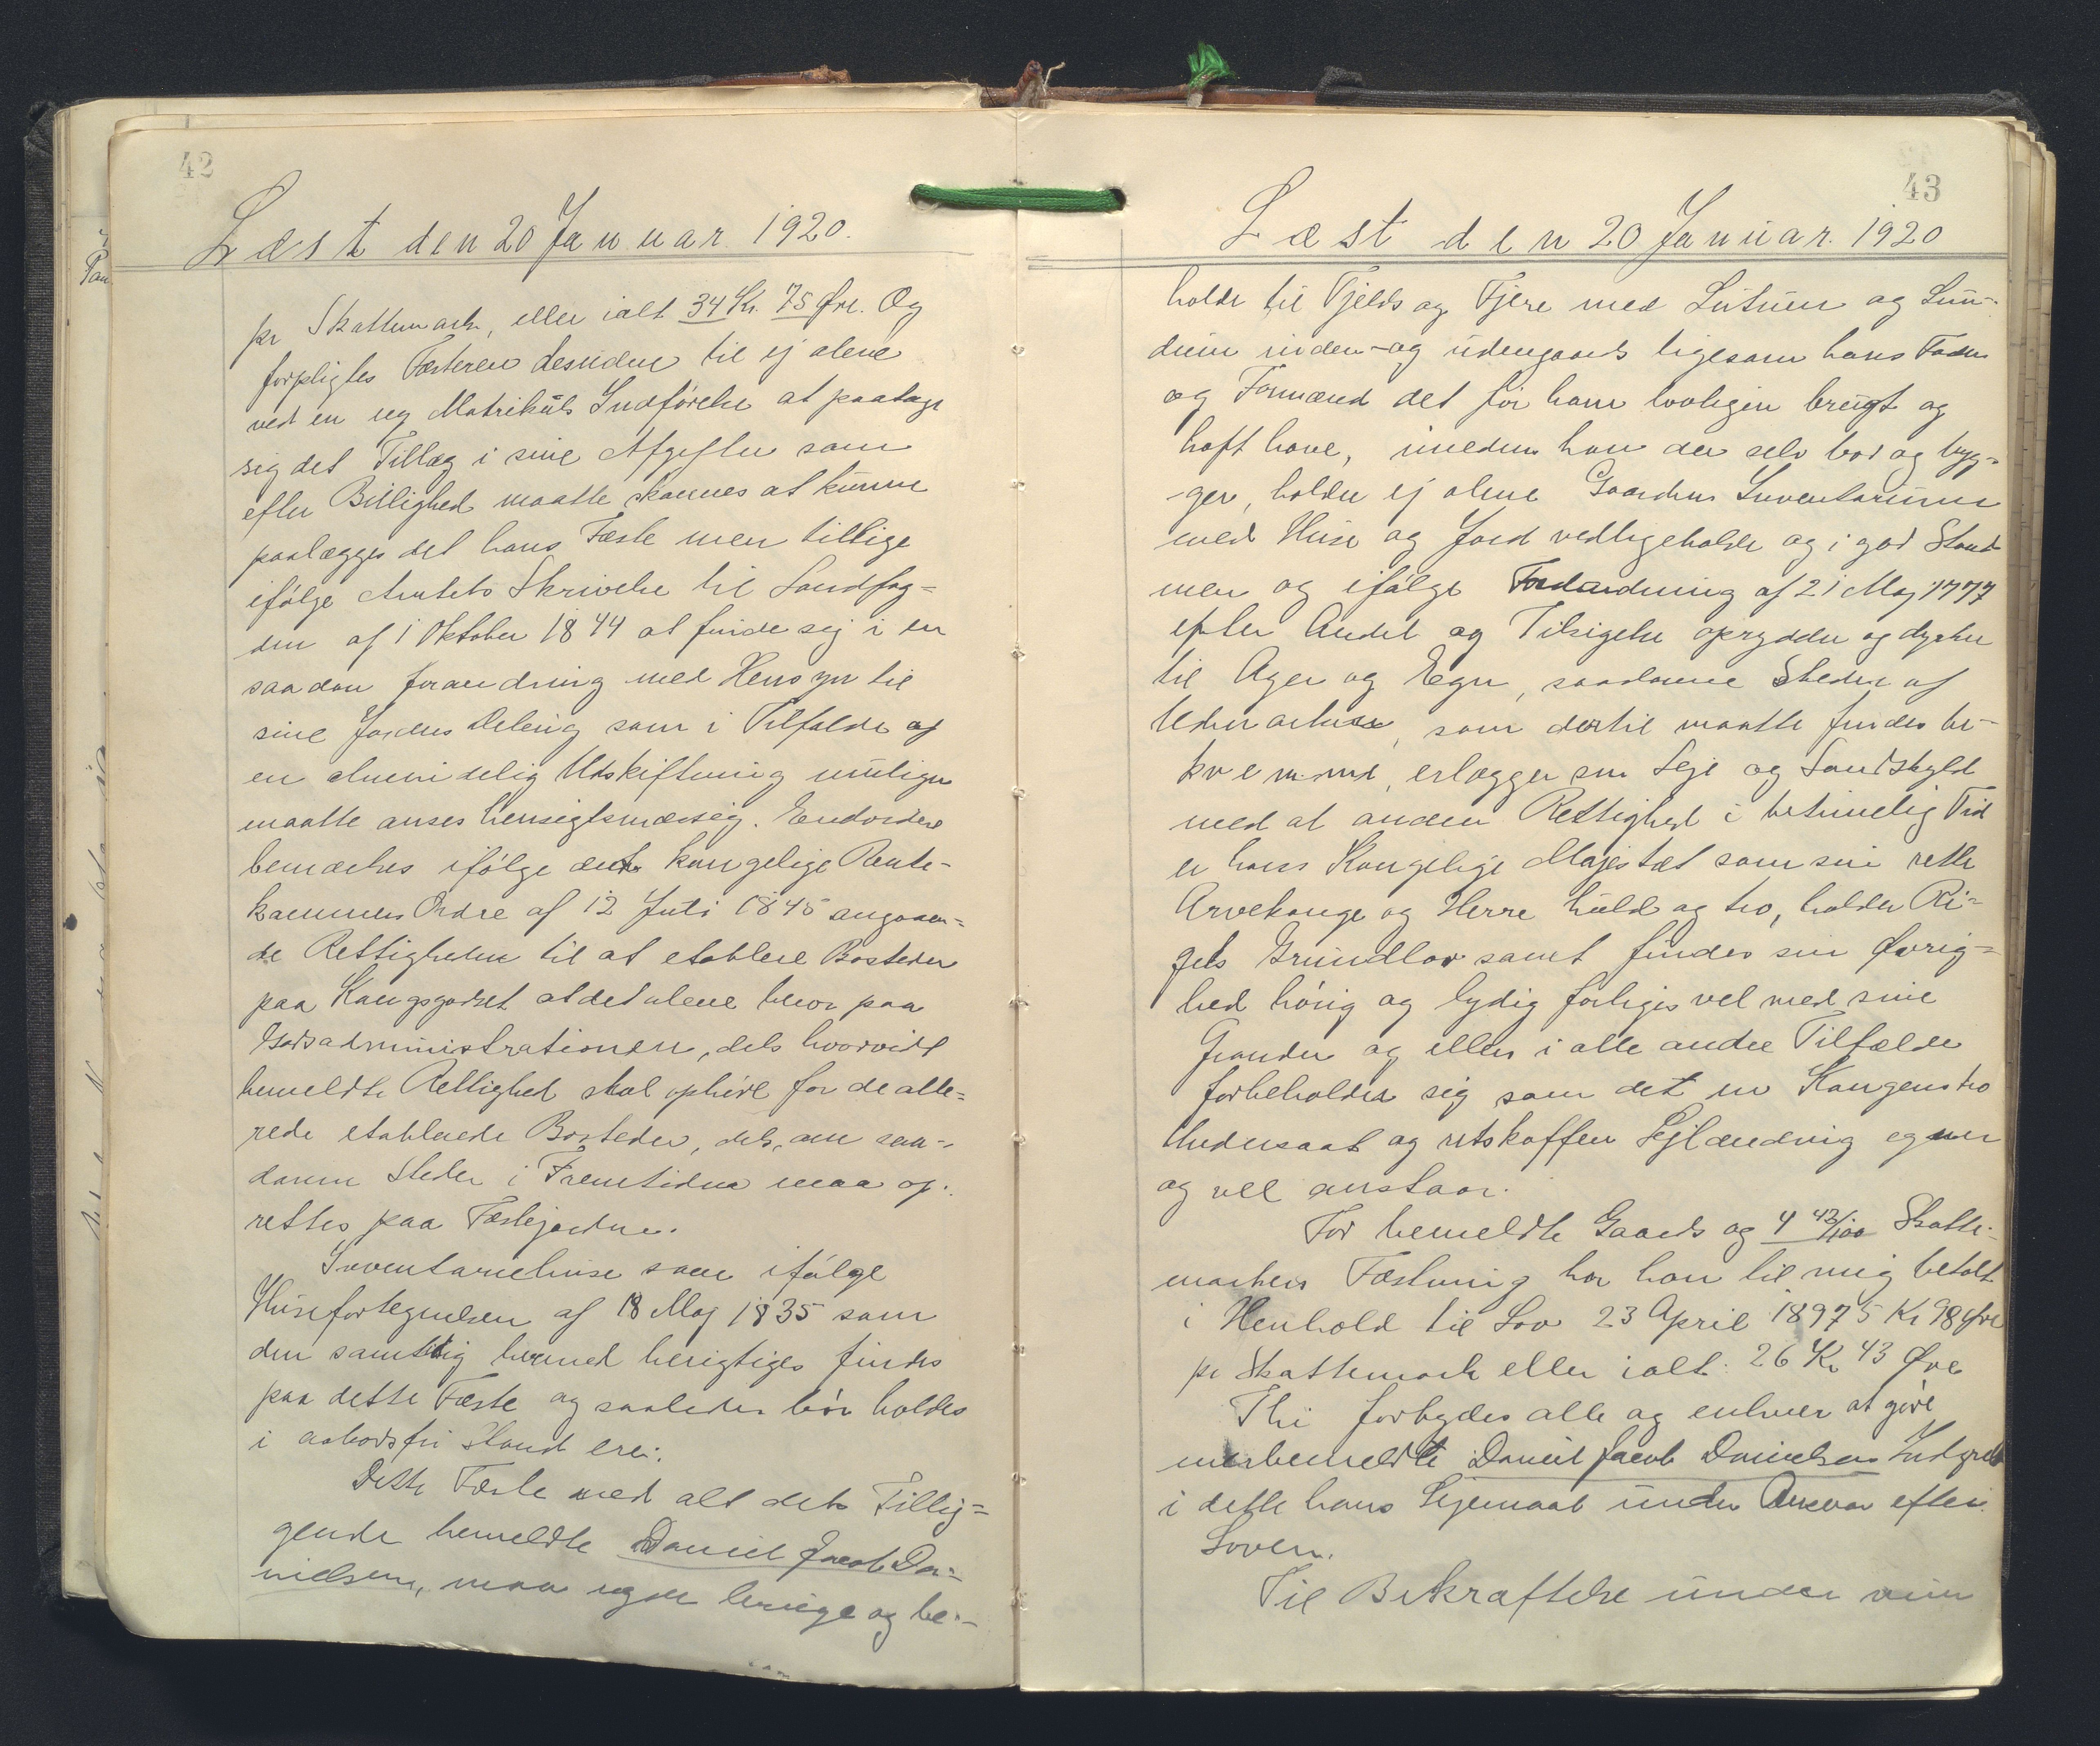 42
Læst den 20 Januar 1920.
pr Skattemark, eller ialt 34 Kr. 75 Øre. Og
forpligtes Fæsteren desuden til ej alene
ved en ny Matrikuls Indførelse at paatage
sig det Tillæg i sine Afgifter som
efter Billighed maatte skønnes at kunne
paalægges det hans Fæste men tillige
ifølge Amtets Skrivelse til Landfog=
den af 1 Oktober 1844 at finde sig i en
saadan forandring med Hensyn til
sine Jorders Deling som i Tilfælde af
en almindelig Udskiftning muligen
maatte anses hensigtsmæssig. Endvidere
bemærkes ifølge det kongelige Rente-
kammers Ordre af 12 Juli 1845 angaaen=
de Rettigheden til at etablere Bosteder
paa Kongsgodset at det alene beror paa
Godsadministrationen, dels hvorvidt
bemeldte Rettighed skal ophøre for de alle=
rede etablerede Bosteder, dels, om saa-
danne Steder i Fremtiden maa op-
rettes paa Fæstejorden.
Inventariehuse som ifølge
Husefortegnelsen af 18 Maj 1835 som
den samtidig hermed berigtiges findes
paa dette Fæste og saaledes bør holdes
i aabodsfri Stand ere:
Dette Fæste med alt dets Tillig=
gende bemeldte Daniel Jacob Da=
nielsen, maa nyde bruge og be-
43
Læst den 20 Januar. 1920
holde til Fjelds og Fjere med Lutum og Lun-
dum inden- og udengaards ligesom hans Fader
og Formænd det før ham lovligen brugt og
haft have, imedens han der selv bor og byg-
-ger, holder ej alene Gaardens Inventarium
med Huse og Jord vedligeholde og i god Stand
men og ifølge Forordning af 21 Maj 1777
efter Andel og Tilsigelse oprydder og dyrker
til Ager og Egn, saadanne Steder af
Udmarken, som dertil maatte findes be-
kvemme, erlægger sin Leje og Landskyld
med al anden Rettighed i betimelig Tid
er hans Kongelige Majestæt som sin rette
Arvekonge og Herre huld og tro, holder Ri=
gets Grundlov samt findes sin Øvrig=
hed hørig og lydig forliges vel med sine
Grander og ellers i alle andre Tilfælde
forbeholder sig som det en Kongens tro
Undersaat og retskaffen Lejlænding egner
og vel anstaar.
For bemeldte Gaards og 4 43/100 Skatte-
markers Fæstning har han til mig betalt
i Henhold til Lov 23 April 1897 5 Kr 98 Øre
pr Skattemark eller ialt: 26 Kr 43 Øre
Thi forbydes alle og enhver at gøre
merbemeldte Daniel Jacob Danielsen Indgreb
i dette hans Lejemaal under Ansvar efter
Loven.
Til Bekræftelse under min